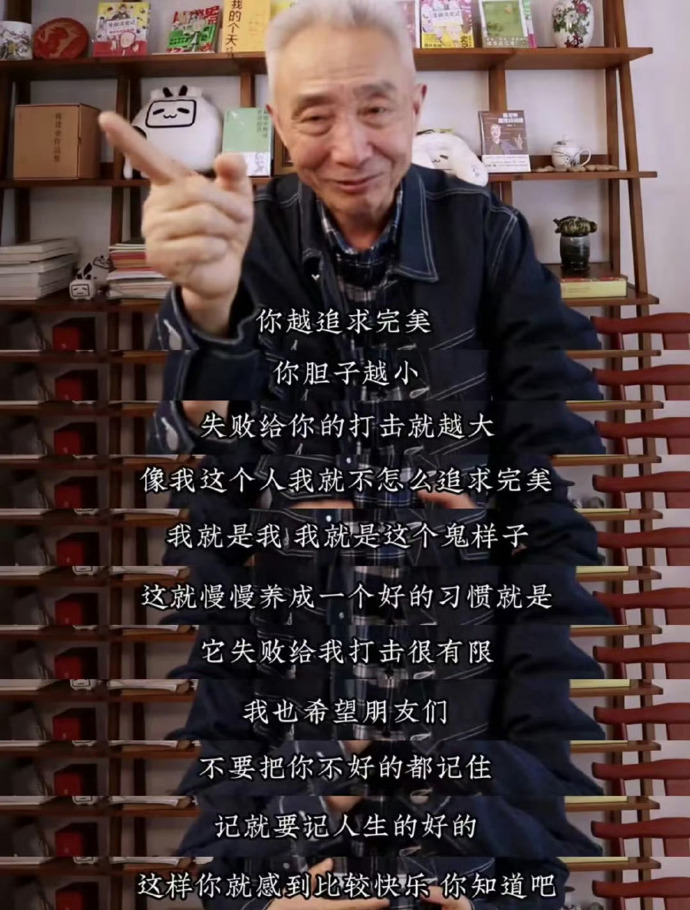 你越追求完美
你胆子越小
失败给你的打击就越大
像我这个人我就不怎么追求完美
我就是我 我就是这个鬼样子
这就慢慢养成一个好的习惯就是
它失败给我打击很有限
我也希望朋友们
不要把你不好的都记住
记就要记人生的好的
这样你就感到比较快乐 你知道吧